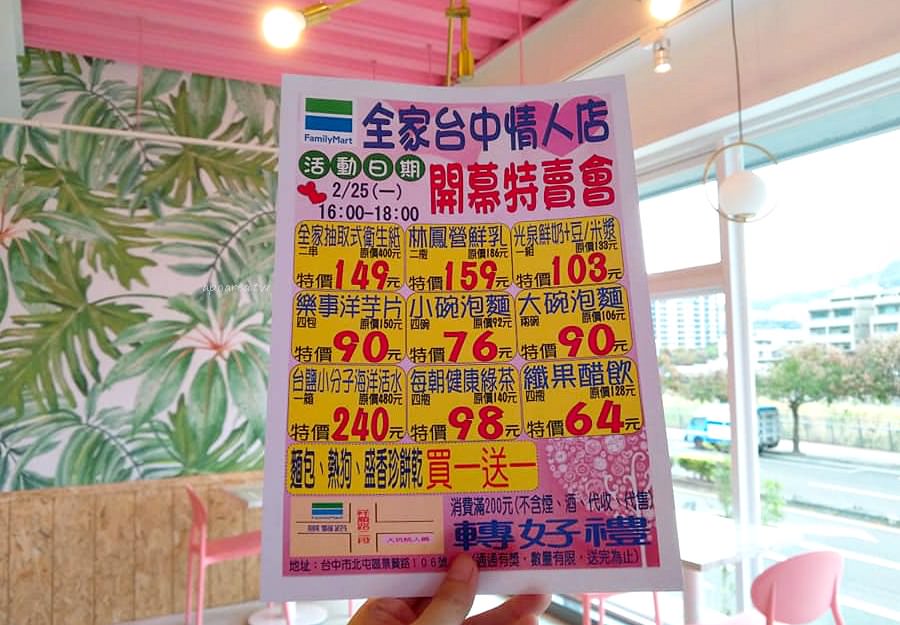 FamilyMart
全家台中情人店
活動日期
2/25(一)
16:00-18:00
開幕特賣會
全家抽取式衛生紙
二串 原價400元
特價149元
林鳳營鮮乳
二瓶 原價186元
特價159元
光泉鮮奶+豆/米漿
一組 原價133元
特價103元
樂事洋芋片
四包 原價150元
特價90元
小碗泡麵
四碗 原價92元
特價76元
大碗泡麵
兩碗 原價106元
特價90元
台鹽小分子海洋活水
一箱 原價480元
特價240元
每朝健康綠茶
四瓶 原價140元
特價98元
纖果醋飲
四瓶 原價128元
特價64元
麵包、熱狗、盛香珍餅乾 買一送一
FamilyMart
景賢路
消費滿200元(不含煙、酒、代收、代售)
轉好禮
(通通有獎，數量有限，送完為止)
地址：台中市北屯區景賢路106號